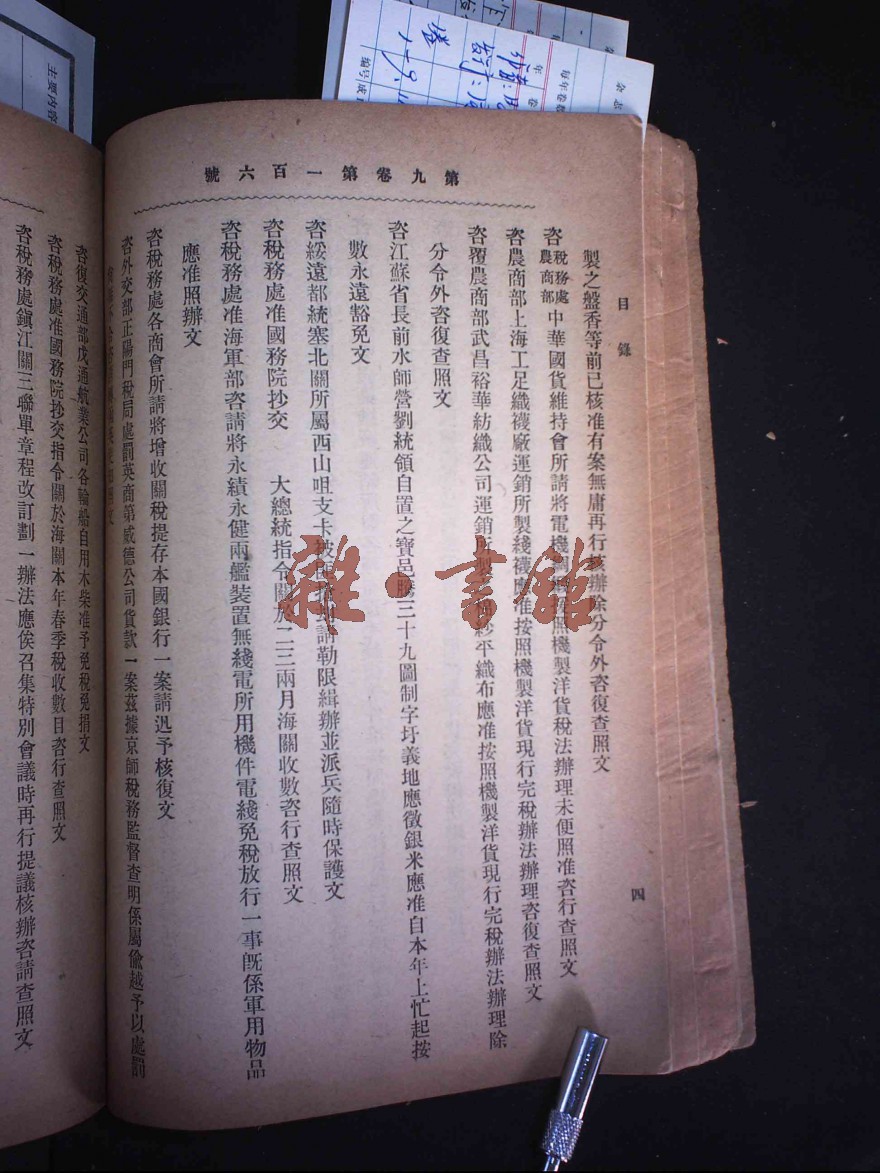 第九卷第一百六號
目錄
四
製之盤香等前已核准有案無庸再行核辦除分令外咨復查照文
咨稅務處農商部中華國貨維持會所請將電機 照機製洋貨稅法辦理未便照准咨行查照文
咨農商部上海工足織襪廠運銷所製綫襪應准按照機製洋貨現行完稅辦法辦理咨復查照文
咨覆農商部武昌裕華紡織公司運銷所製 紗平織布應准按照機製洋貨現行完稅辦法辦理除
分令外咨復查照文
咨江蘇省長前水師營劉統領自置之寶邑 三十九圖制字圩義地應徵銀米應准自本年上忙起按
數永遠豁免文
咨綏遠都統塞北關所屬西山咀支卡被 請勒限緝辦並派兵隨時保護文
咨稅務處准國務院抄交 大總統指令關於二三兩月海關收數咨行查照文
咨稅務處准海軍部咨請將永績永健兩艦裝置無綫電所用機件電綫免稅放行一事既係軍用物品
應准照辦文
咨稅務處各商會所請將增收關稅提存本國銀行一案請迅予核復文
咨外交部正陽門稅局處罰英商第威德公司貨款一案茲據京師稅務監督查明係屬偷越予以處罰
咨復交通部戊通航業公司各輪船自用木柴准予免稅免捐文
咨稅務處准國務院抄交指令關於海關本年春季稅收數目咨行查照文
咨稅務處鎭江關三聯單章程改訂劃一辦法應俟召集特別會議時再行提議核辦咨請查照文
雜·書館
主要內容
每年卷數
編號